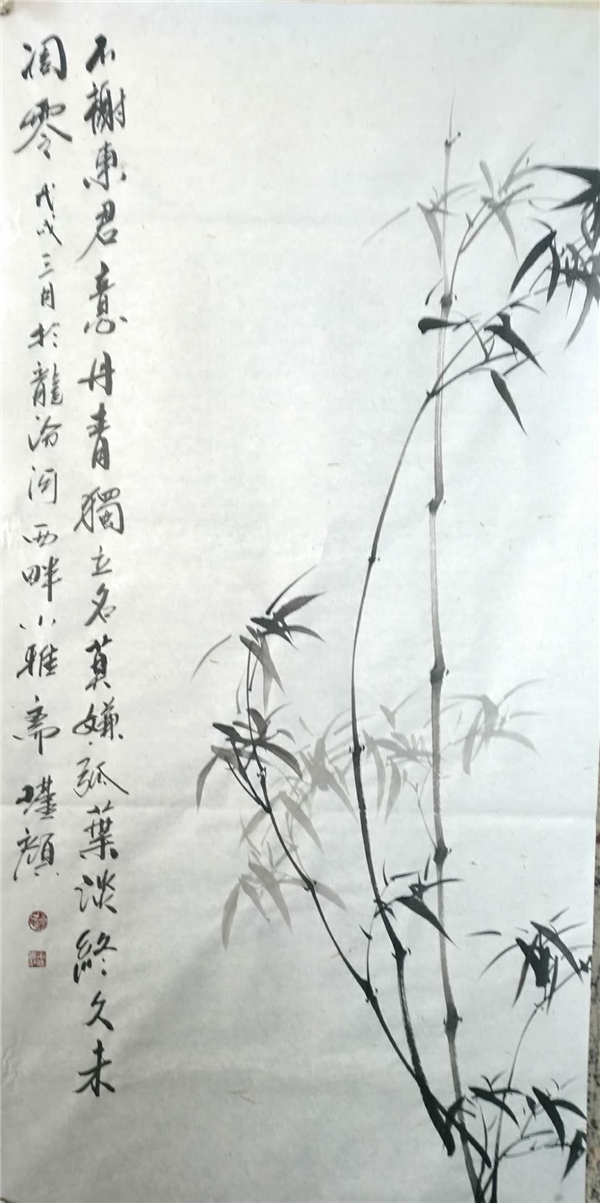 不謝東君意丹青獨立名莫嫌孤葉淡終久未
凋零 戊戌三月於龍汾河西畔小雅齋 顏